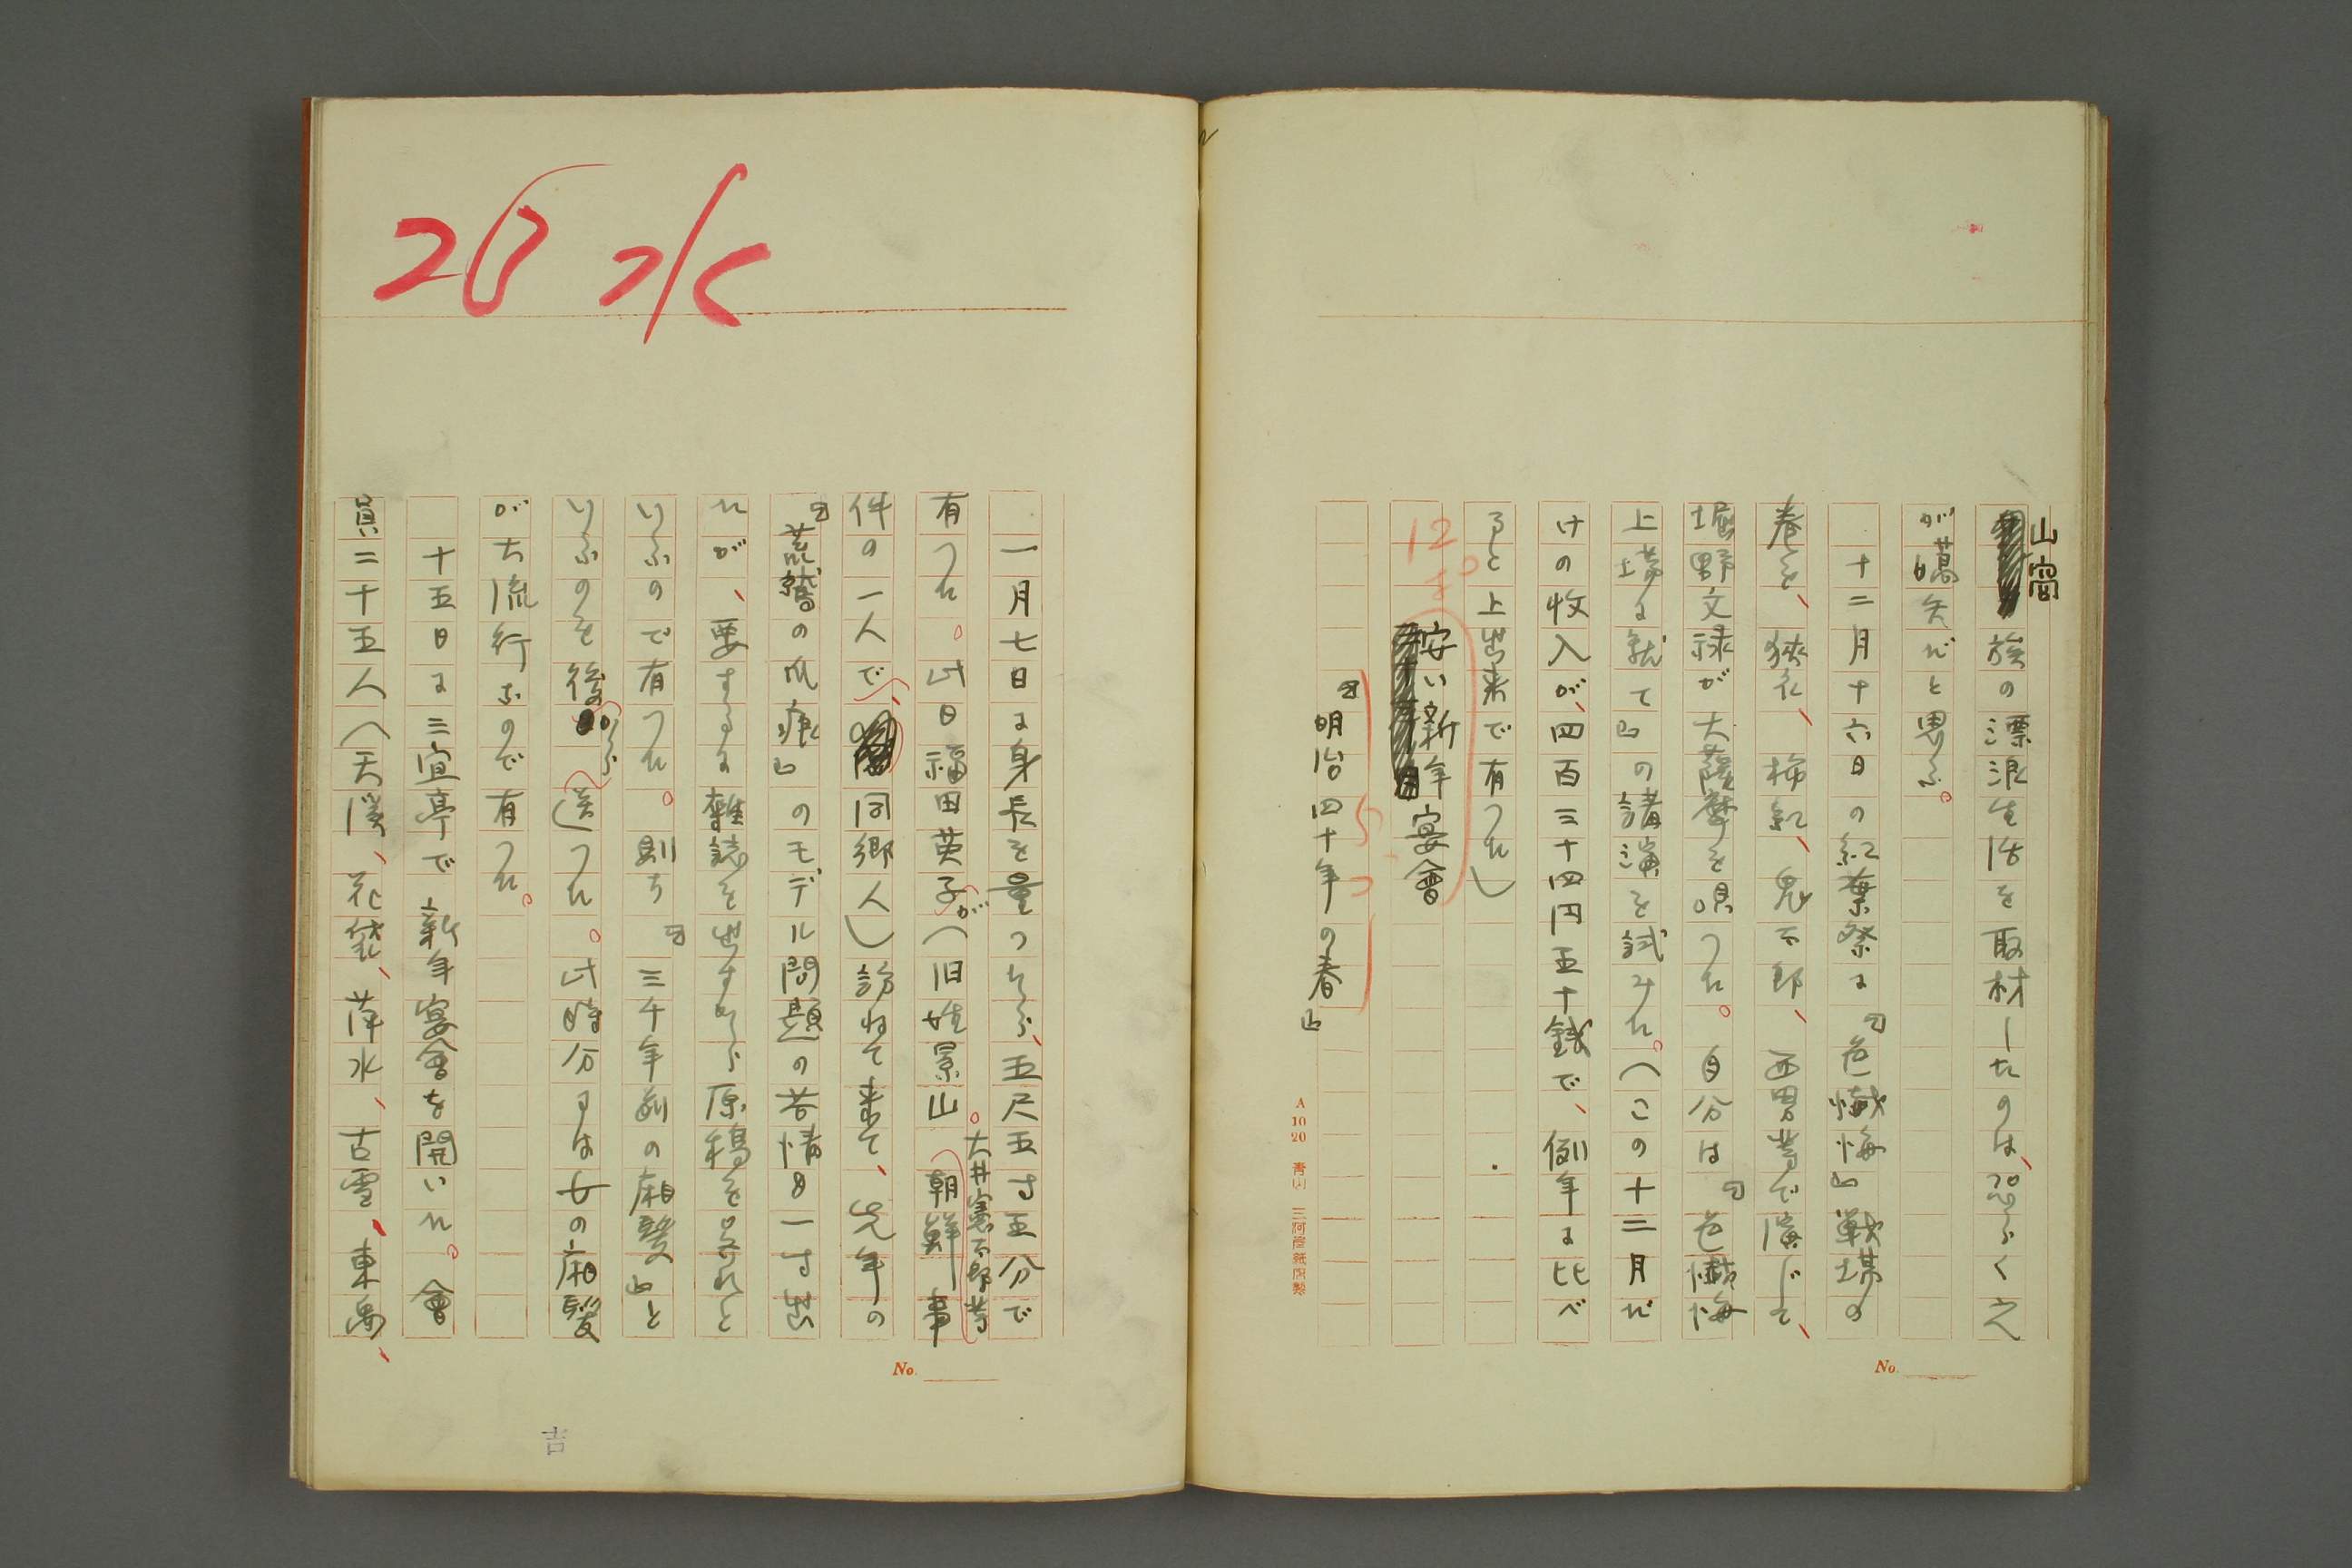 山窩
族の漂浪生活を取材したのは、恐らく之
が嚆矢だと思ふ。
十二月十六日の紅葉祭に『色懺悔』戦場の
巻を、狭衣、柿紅、鬼太郎、西男等で演じて、
堀野文禄が大薩摩を唄つた。自分は『色懺悔
上場に就て』の講演を試みた。(この十二月だ
けの收入が、四百三十四円五十銭で、例年に比べ
ると上出来で有つた)
12ポ
安い新年宴會
『明治四十年の春』
5
A 10 20 青山 三河屋紙店製
No.
一月七日に身長を量つたら、五尺五寸五分で
有つた。此日福田英子が(旧姓景山。大井憲太郎等
朝鮮事
件の一人で、同郷人)訪ねて来て、先年の
『荒鷲の爪痕』のモデル問題の苦情も一寸出
たが、要するに雑誌を出すから原稿を呉れと
いふので有つた。則ち『三千年前の廂髪』と
いふのを後から送つた。此時分には女の廂髪
が大流行なので有つた。
十五日に三宜亭で新年宴會を開いた。會
員二十五人(天溪、花袋、萍水、古雪、東禹、
No.
吉